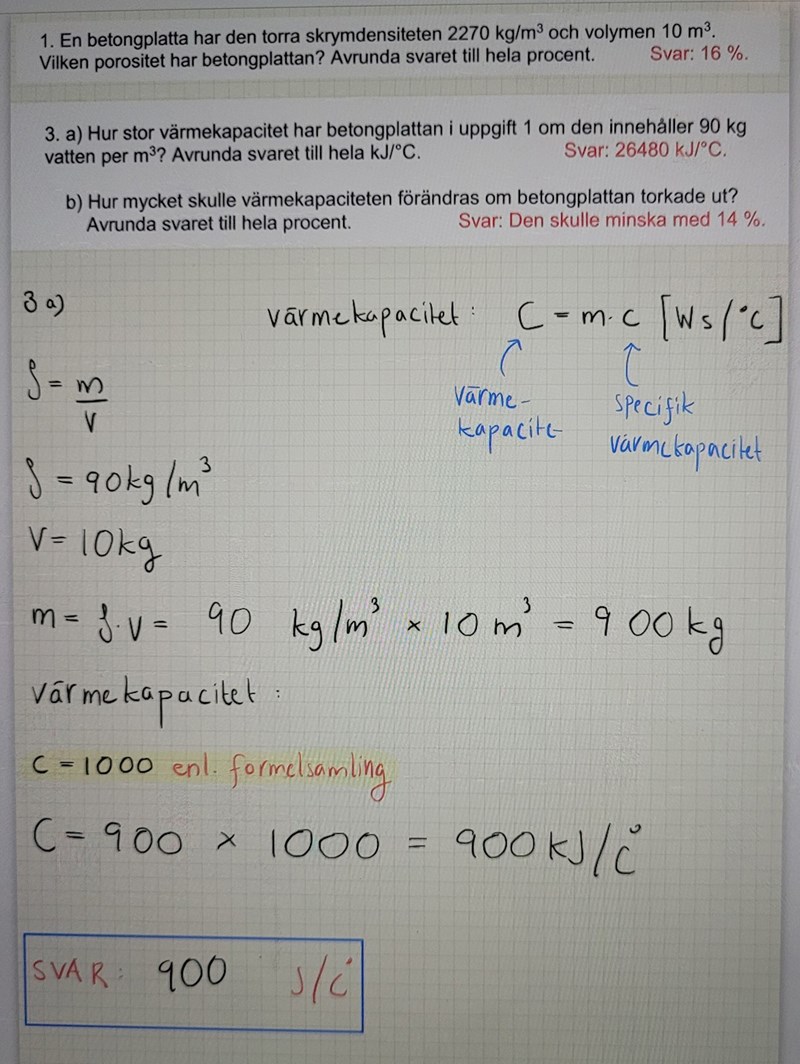 1. En betongplatta har den torra skrymdensiteten 2270 kg/m³ och volymen 10 m³.
Vilken porositet har betongplattan? Avrunda svaret till hela procent. Svar: 16 %.
3. a) Hur stor värmekapacitet har betongplattan i uppgift 1 om den innehåller 90 kg
vatten per m³? Avrunda svaret till hela kJ/°C. Svar: 26480 kJ/°C.
b) Hur mycket skulle värmekapaciteten förändras om betongplattan torkade ut?
Avrunda svaret till hela procent. Svar: Den skulle minska med 14 %.
3 a) värmekapacitet: C = m·c [Ws/°C]
ρ = m/V
värme-
kapacite
specifik
värmekapacitet
ρ = 90kg/m³
V = 10kg
m = ρ·V = 90 kg/m³ × 10 m³ = 900 kg
värmekapacitet :
C = 1000 enl. formelsamling
C = 900 × 1000 = 900 kJ/C°
SVAR: 900 J/C°